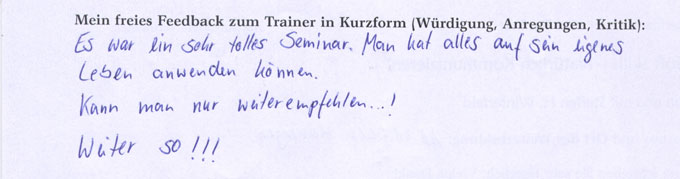 Mein freies Feedback zum Trainer in Kurzform (Würdigung, Anregungen, Kritik):
Es war ein sehr tolles Seminar. Man hat alles auf sein eigenes
Leben anwenden können.
Kann man nur weiterempfehlen...!
Weiter so!!!